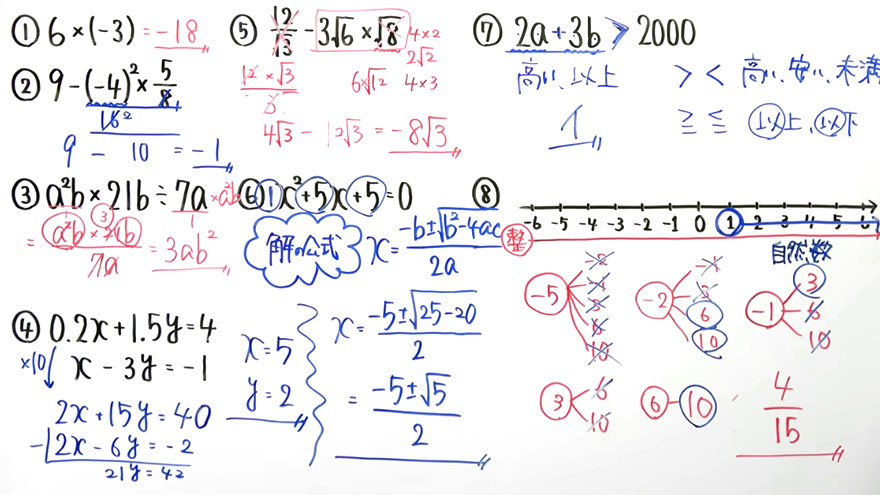 ① 6×(-3) = -18
② 9-(-4)²×5/8
16²
9 - 10 = -1
③ a²b×21b÷7a
= a²b×21b/7a = 3ab²
④ 0.2x+1.5y=4
×10
x-3y=-1
2x+15y=40
-) 2x-6y=-2
21y=42
x=5
y=2
⑤ 12/√3 - 3√6×√8
4×2
2√2
12×√3/3
6√12 4×3
4√3 - 12√3 = -8√3
⑥ 1x²+5x+5=0
解の公式 x = -b±√b²-4ac/2a
x = -5±√25-20/2
= -5±√5/2
⑦ 2a+3b > 2000
高い、以上 > < 高い、安い、未満
1 ≧ ≦ 以上、以下
⑧
-6 -5 -4 -3 -2 -1 0 1 2 3 4 5 6
整
自然数
-5
-2
6
10
-1
3
6
10
3
6
10
6 - 10
4/15